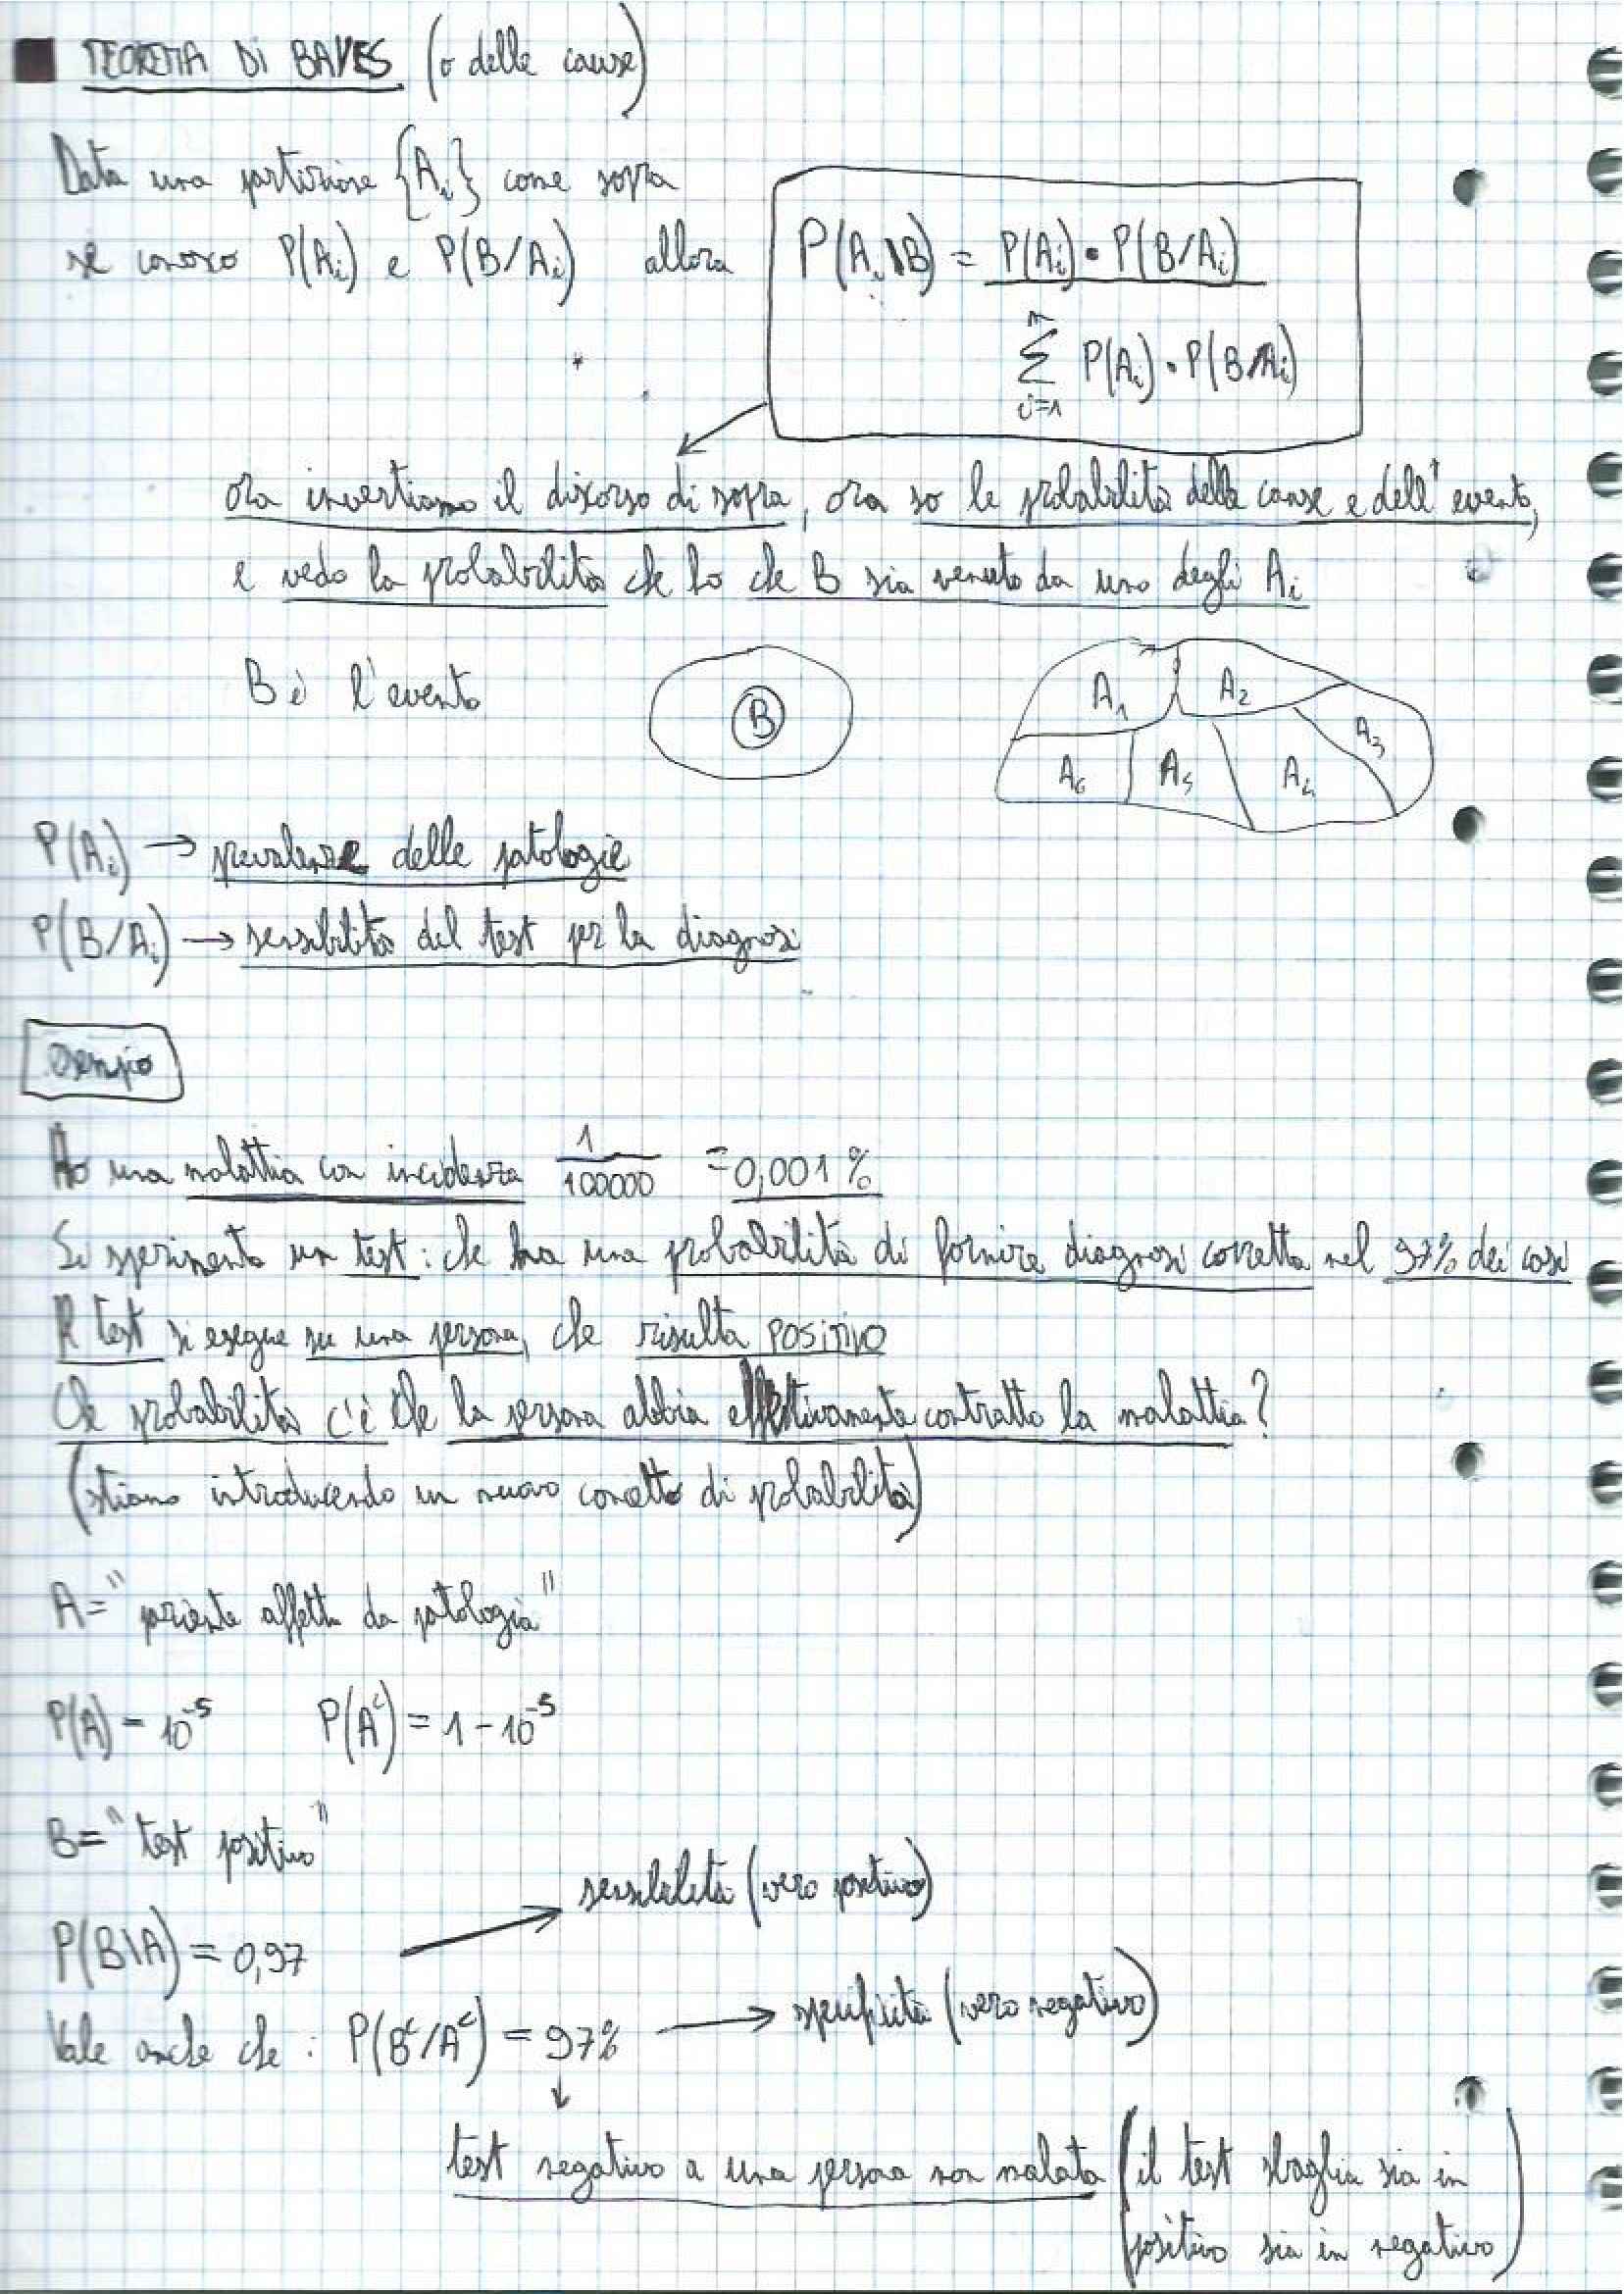 TEOREMA DI BAYES (o delle cause)
Data una partizione {Ai} come sopra
se conosco P(Ai) e P(B/Ai) allora
P(Ai\B) = P(Ai) • P(B/Ai)
n
∑ P(Ai) • P(B/Ai)
i=1
ora invertiamo il discorso di sopra, ora so le probabilità delle cause e dell'evento,
e vedo la probabilità che ho che B sia venuto da uno degli Ai
B è l'evento
B
A1 A2
A3
A6 A5 A4
P(Ai) → prevalenze delle patologie
P(B/Ai) → sensibilità del test per la diagnosi
esempio
Ho una malattia con incidenza 1/100000 = 0,001%
Si sperimenta un test: che ha una probabilità di fornire diagnosi corretta nel 97% dei casi
Il test si esegue su una persona, che risulta POSITIVO
Che probabilità c'è che la persona abbia effettivamente contratto la malattia?
(stiamo introducendo un nuovo concetto di probabilità)
A = "paziente affetto da patologia"
P(A) = 10^-5 P(A^c) = 1 - 10^-5
B = "test positivo"
sensibilità (vero positivo)
P(B\A) = 0,97
Vale anche che: P(B^c/A^c) = 97% → specificità (vero negativo)
↓
test negativo a una persona non malata (il test sbaglia sia in
positivo sia in negativo)